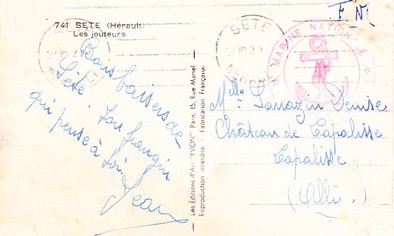 741 SETE (Hérault)
Les jouteurs
F. N.
SETE
MARINE NATIONALE
Bons baisers de
Sète. Ton frangin
qui pense à toi.
Jean
Les Editions d'Art "YVON" Paris, 15, Rue Martel
Reproduction interdite - Fabrication Française
Melle Sarrazin Denise
Château de Lapalisse
Lapalisse
(Alli.)